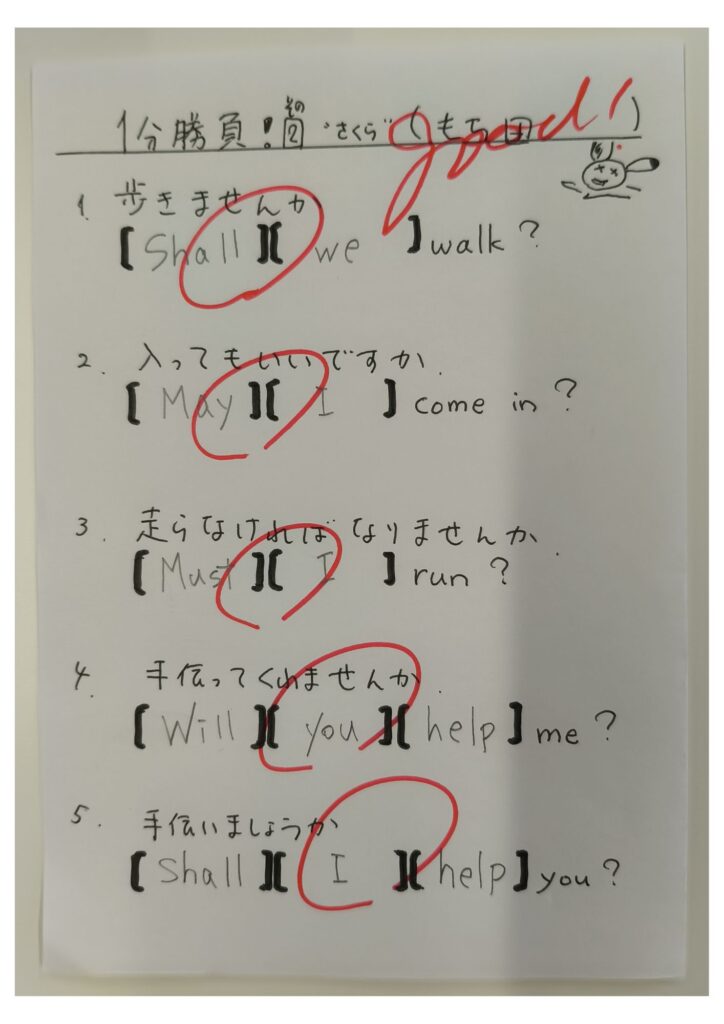 1分勝負!その2 "さくら" (もち田)
good!
1. 歩きませんか
[Shall][we]walk?
2. 入ってもいいですか.
[May][I] come in?
3. 走らなければなりませんか.
[Must][I] run?
4. 手伝ってくれませんか.
[Will][you][help] me?
5. 手伝いましょうか
[Shall][I][help] you?